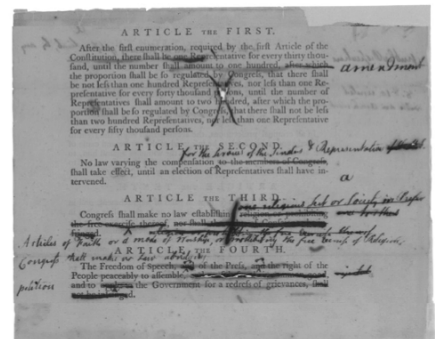 ARTICLE THE FIRST.
After the first enumeration, required by the first Article of the
Constitution, there shall be one Representative for every thirty thou-
sand, until the number shall amount to one hundred, after which
amendment
the proportion shall be so regulated by Congress, that there shall
be not less than one hundred Representatives, nor less than one Re-
presentative for every forty thousand persons, until the number of
Representatives shall amount to two hundred, after which the pro-
portion shall be so regulated by Congress, that there shall not be less
than two hundred Representatives, nor less than one Representative
for every fifty thousand persons.
ARTICLE THE SECOND.
for the services of the Senators & Representatives
No law varying the compensation to the members of Congress,
shall take effect, until an election of Representatives shall have in-
tervened.
a
ARTICLE THE THIRD.
one religious sect or society in
Congress shall make no law establishing
the free exercise thereof, nor shall
Articles of faith or a mode of worship, or prohibiting the free exercise of Religion,
ARTICLE THE FOURTH.
Congress shall make no law abridging
The Freedom of Speech, of the Press, and the right of the
People peaceably to assemble,
petition
and to the Government for a redress of grievances, shall